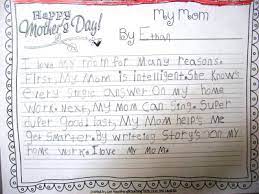 Happy Mother's Day!
My Mom
By Ethan
I love my mom for many reasons.
First, My Mom is intelligent. She Know's
every single answer on My home
work. Next, My Mom can Sing. Super
duper Good. Last, My Mom help's me
get smarter. By writeing Story's on my
home work. I love My Mom.